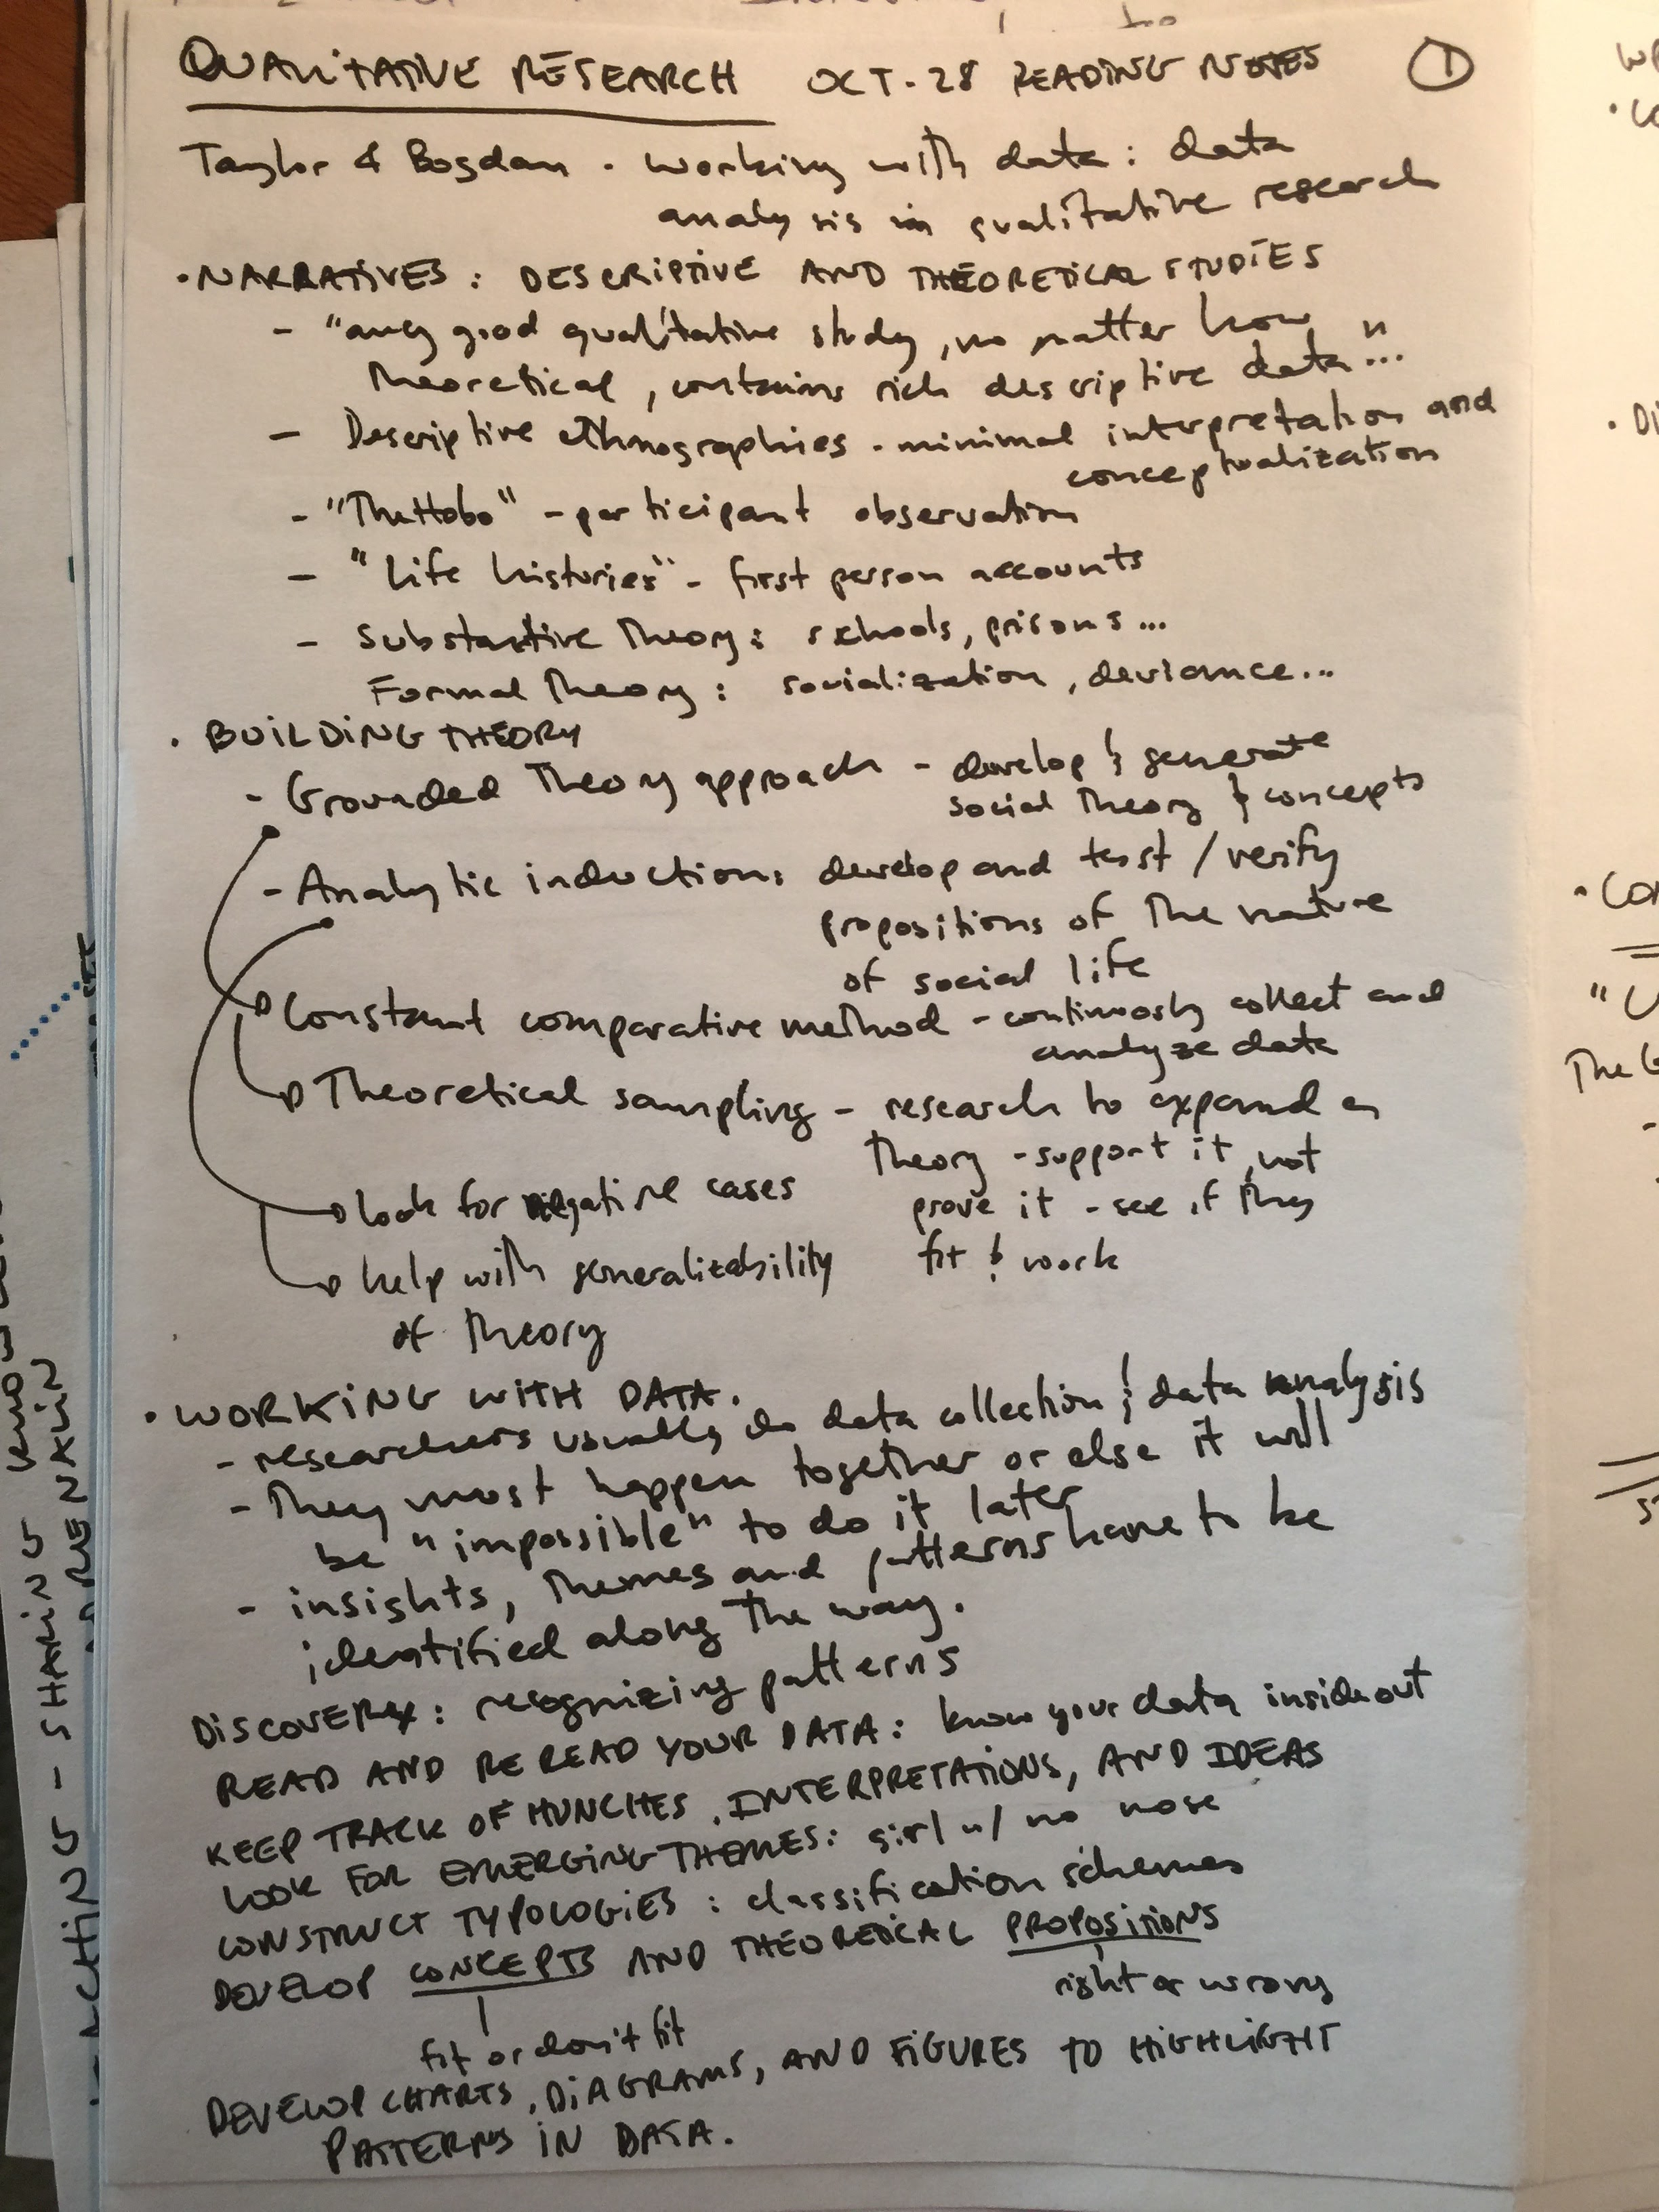 QUALITATIVE RESEARCH OCT. 28 READING NOTES 1
Taylor & Bogdan . working with data : data
analysis in qualitative research
· NARRATIVES : DESCRIPTIVE AND THEORETICAL STUDIES
- "any good qualitative study, no matter how
theoretical, contains rich descriptive data..."
- Descriptive ethnographies . minimal interpretation and
conceptualization
- "The Hobo" - participant observation
- "Life histories" - first person accounts
- Substantive Theory : schools, prisons...
Formal Theory : socialization, deviance...
· BUILDING THEORY
- Grounded Theory approach - develop & generate
social Theory & concepts
- Analytic induction: develop and test / verify
propositions of The nature
of social life
Constant comparative method - continuosly collect and
analyze data
Theoretical sampling - research to expand a
Theory - support it, not
prove it - see if they
fit & work
look for negative cases
help with generalizability
of Theory
· WORKING WITH DATA.
- researchers usually do data collection & data analysis
- They must happen together or else it will
be "impossible" to do it later
- insights, Themes and patterns have to be
identified along The way.
DISCOVERY : recognizing patterns
READ AND REREAD YOUR DATA : know your data inside out
KEEP TRACK OF HUNCHES, INTERPRETATIONS, AND IDEAS
LOOK FOR EMERGING THEMES : girl w/ no nose
CONSTRUCT TYPOLOGIES : classification schemes
DEVELOP CONCEPTS AND THEORETICAL PROPOSITIONS
right or wrong
fit or don't fit
DEVELOP CHARTS, DIAGRAMS, AND FIGURES TO HIGHLIGHT
PATTERNS IN DATA.
- SHARING
"U